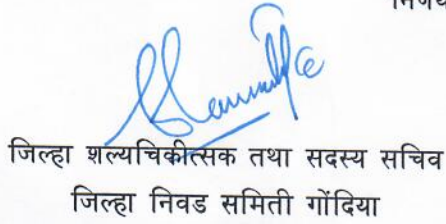 जिल्हा शल्यचिकीत्सक तथा सदस्य सचिव
जिल्हा निवड समिती गोंदिया